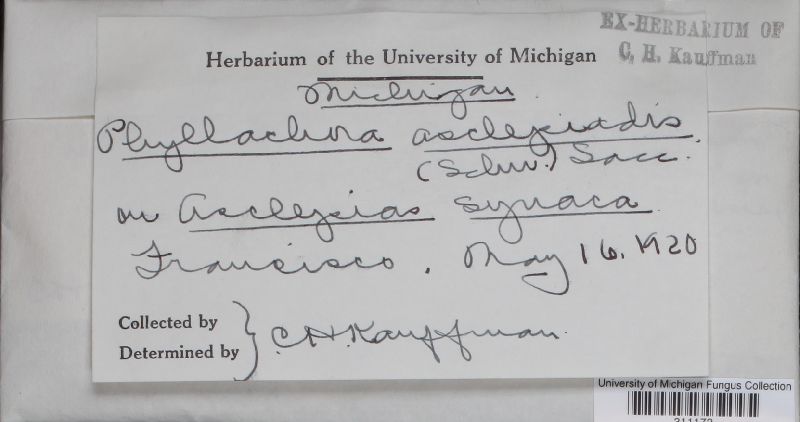 EX-HERBARIUM OF
C. H. Kauffman
Herbarium of the University of Michigan
Michigan
Phyllachora asclepiadis
(Schw.) Sacc.
on Asclepias syriaca
Francisco. May 16. 1920
Collected by
Determined by
C H Kauffman.
University of Michigan Fungus Collection